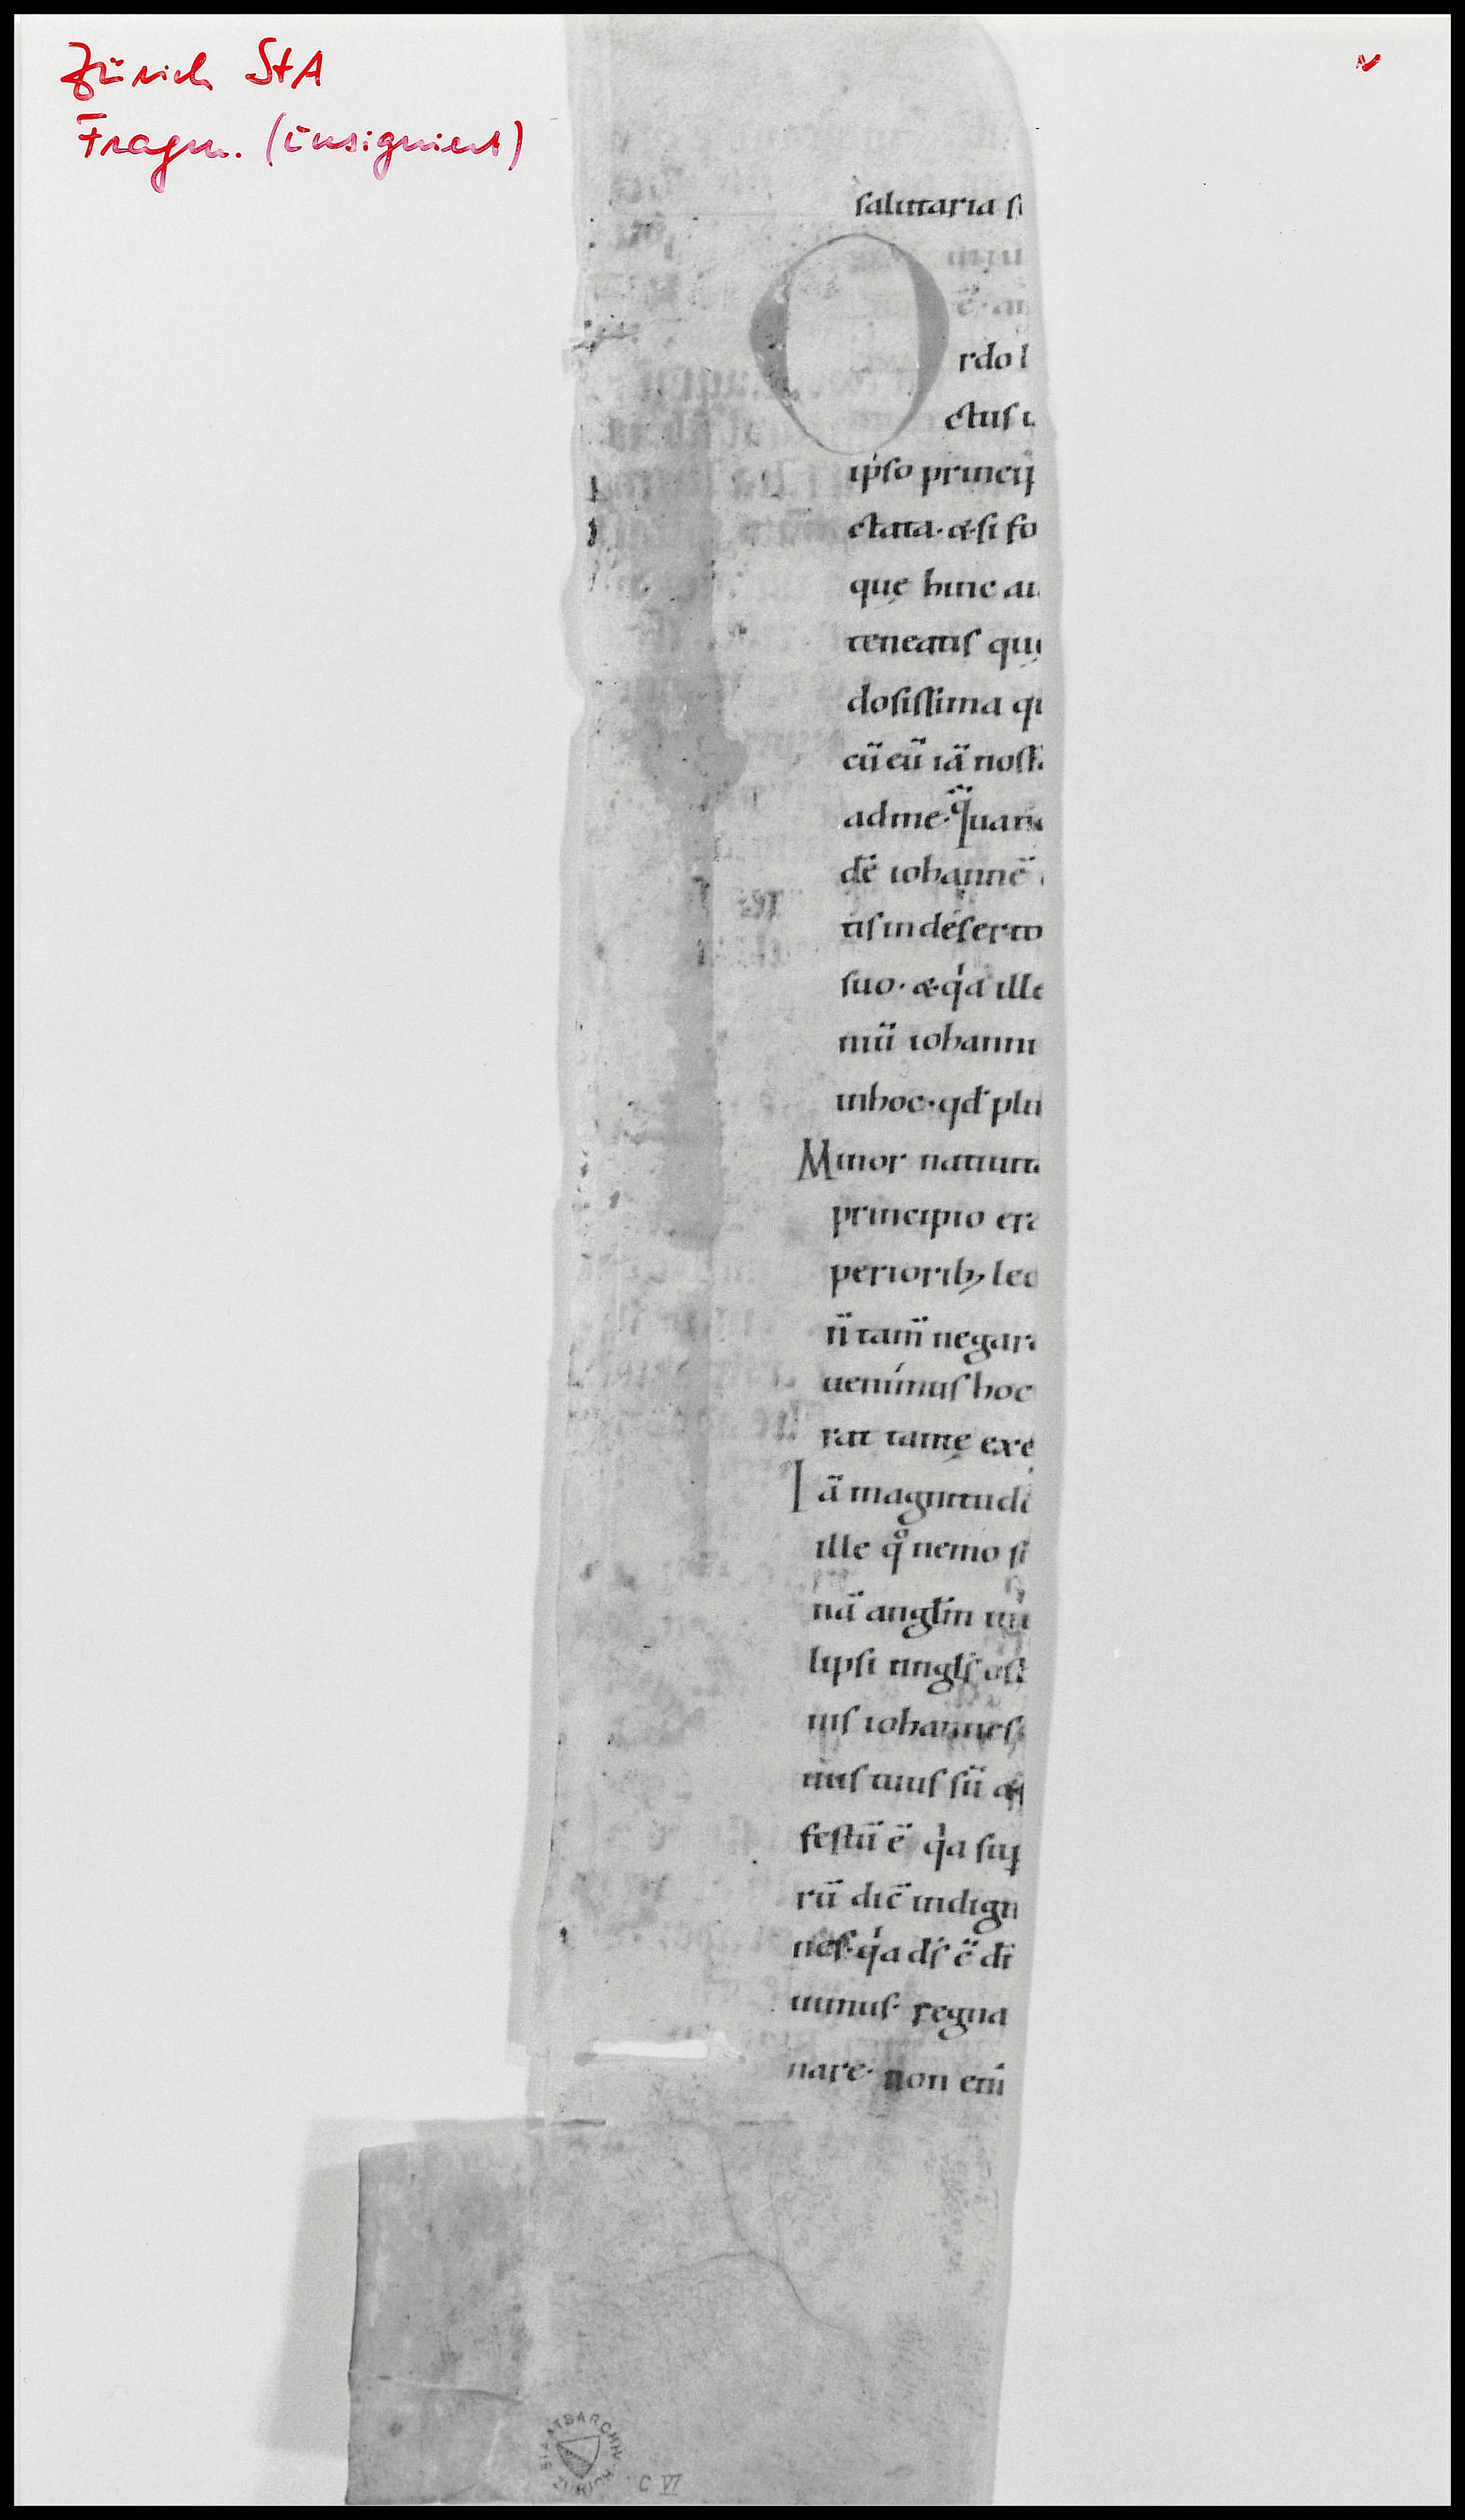 Zürich StA
Fragm. (unsigniert)
salutaria si
rdo l
O
ctus
ipso princip
ctata · & si fo
quę hinc au
teneatis qu
dosissima q
cū eū iā nost
ad me · quar
dē iohannē
tis in deserto
suo · & qͥa ille
mū iohanni
in hoc · qđ plu
Minor natiuit
principio era
periorib; lec
n̄ tam̄ negar
uenimus hoc
rat tantę exe
Iā magnitudi
ille qͦ nemo si
nā anglm̄
lipsi angls̄ ost
nis iohannes
uus tuus sū &
festū ē qͥa sup
rū dic̄ indign
nes · qͥa ds̄ ē di
minus · regna
nare · non eni
STAATSARCHIV · ZÜRICH ·
C VI